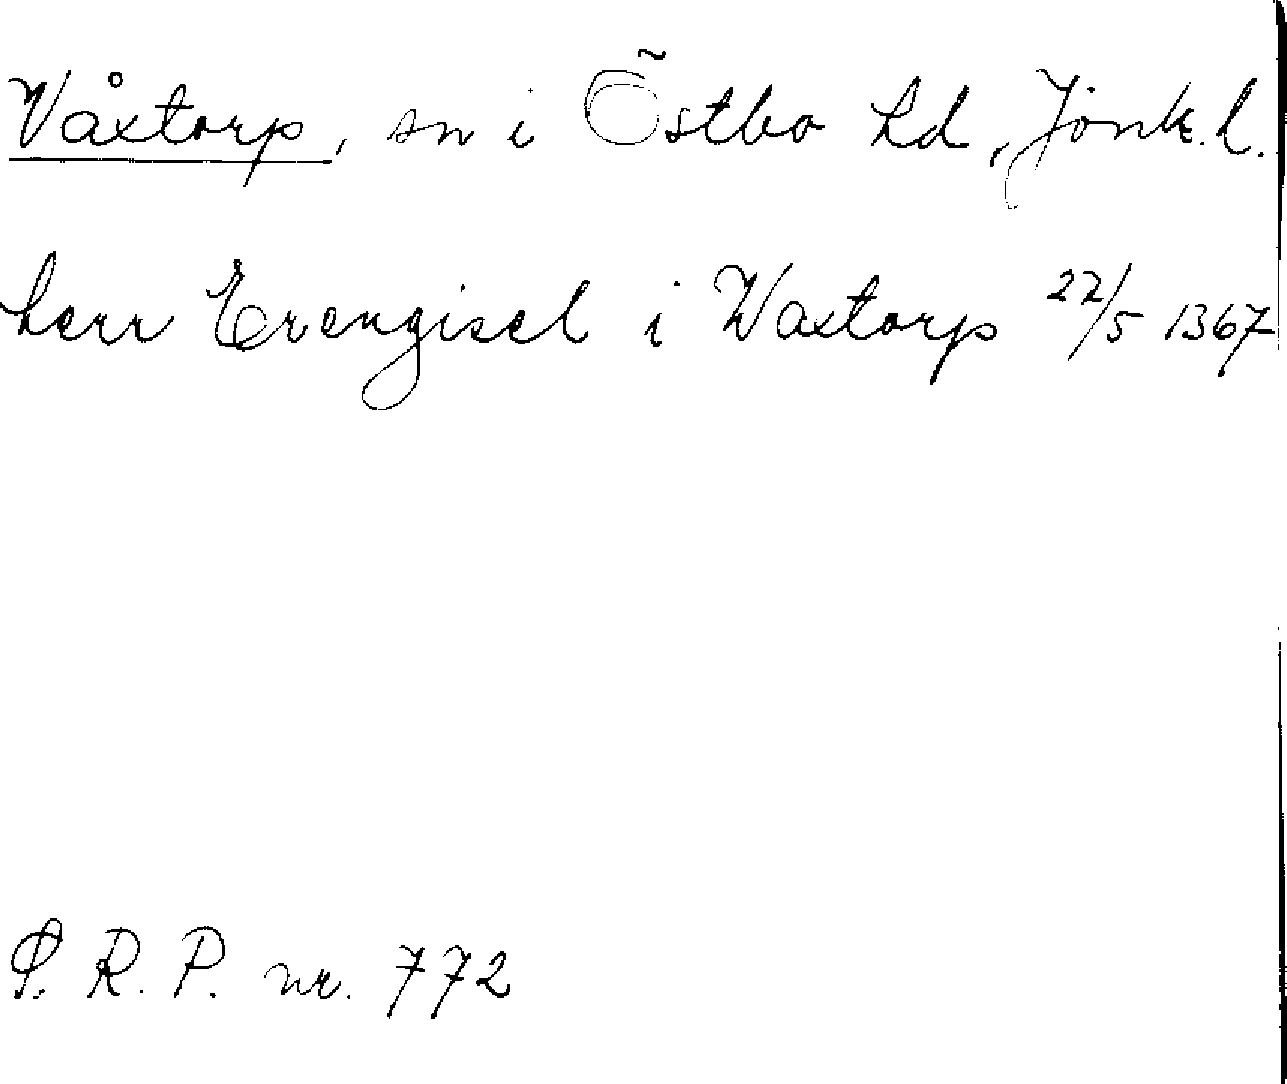 Våxtorp, sn i Östbo hd, Jönk. l.
herr Erengisel i Waxtorp 22/5 1367
S. R. P. nr. 772